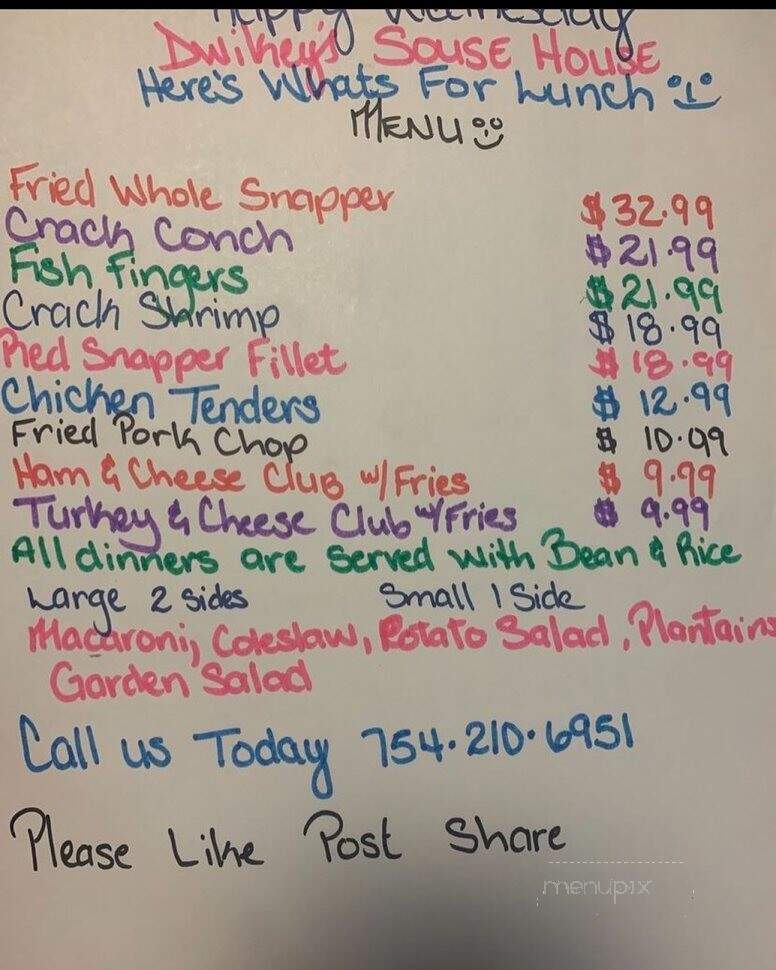 Happy Wednesday
Dwikey's Souse House
Here's Whats For Lunch
MENU
Fried Whole Snapper $32.99
Crack Conch $21.99
Fish Fingers $21.99
Crack Shrimp $18.99
Red Snapper Fillet $18.99
Chicken Tenders $12.99
Fried Pork Chop $10.99
Ham & Cheese Club w/Fries $9.99
Turkey & Cheese Club w/Fries $9.99
All dinners are served with Bean & Rice
Large 2 Sides Small 1 Side
Macaroni, Coleslaw, Potato Salad, Plantains
Garden Salad
Call us Today 754.210.6951
Please Like Post Share
menupix